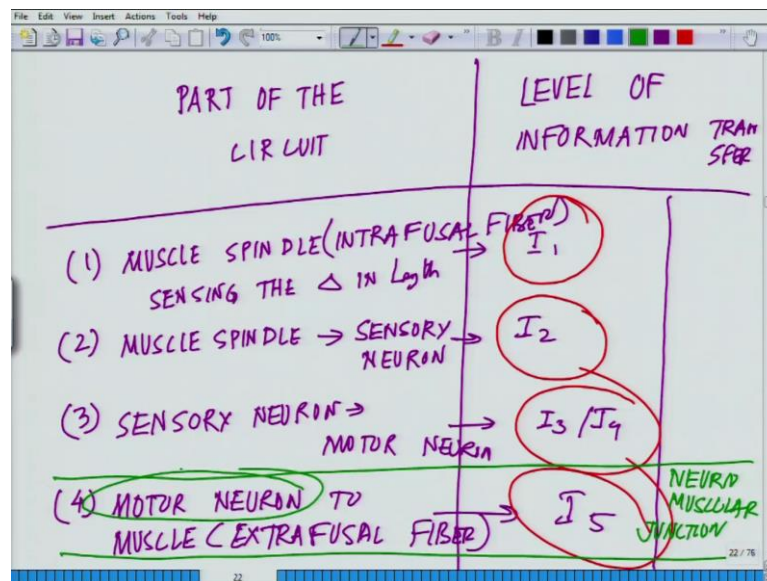 File Edit View Insert Actions Tools Help
100%
B I
PART OF THE
CIRCUIT
LEVEL OF
INFORMATION TRAN
SFER
(1) MUSCLE SPINDLE (INTRAFUSAL FIBER)
SENSING THE Δ IN Length
→ I1
(2) MUSCLE SPINDLE → SENSORY
NEURON
→ I2
(3) SENSORY NEURON →
MOTOR NEURON
→ I3/I4
(4) MOTOR NEURON TO
MUSCLE (EXTRAFUSAL FIBER)
→ I5
NEURO
MUSCULAR
JUNCTION
22 / 76
22